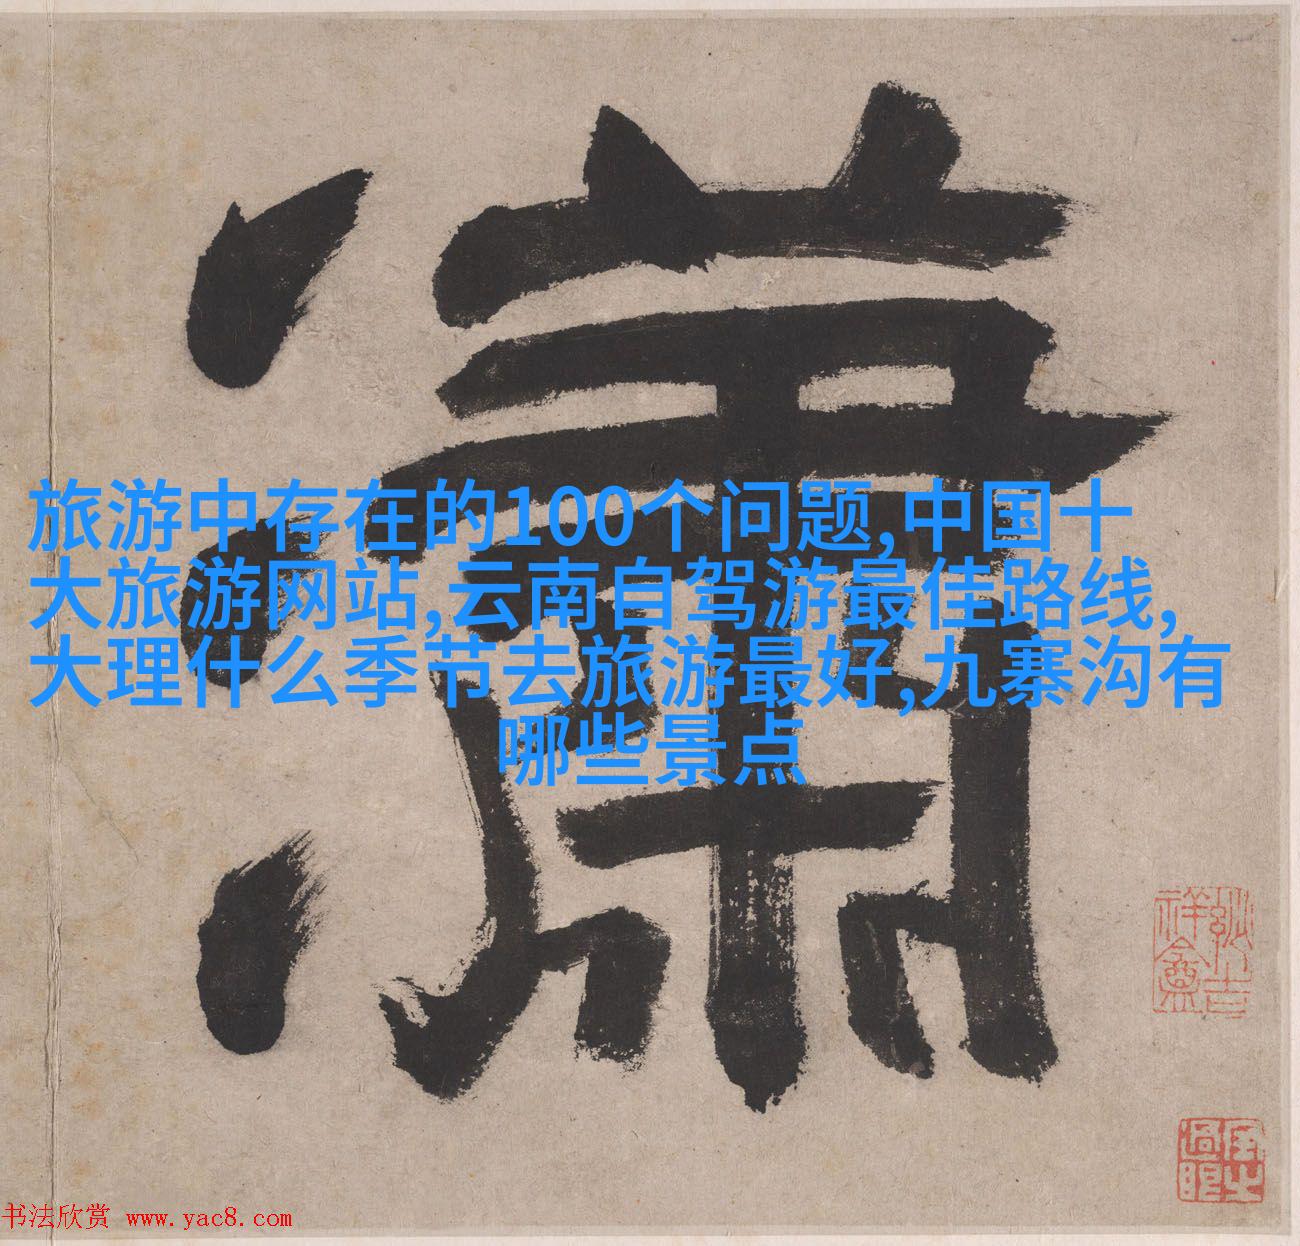 瀟
旅游中存在的100个问题,中国十
大旅游网站,云南自驾游最佳路线,
大理什么季节去旅游最好,九寨沟有
哪些景点
书法欣赏 www.yac8.com